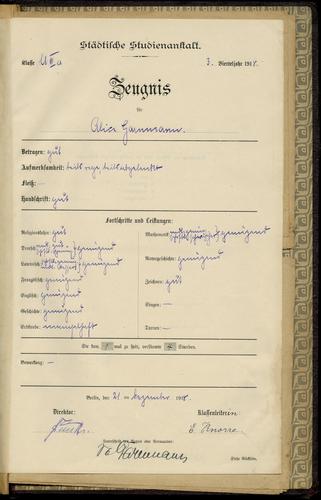 Städtische Studienanstalt.
Klasse U III a 3. Vierteljahr 1918.
Zeugnis
für
Alice
Betragen: gut
Aufmerksamkeit: teils rege, teils abgelenkt
Fleiß: —
Handschrift: gut
Fortschritte und Leistungen:
Religionslehre: gut
Deutsch: genügend
Lateinisch: genügend
Französisch: genügend
Englisch: genügend
Geschichte: genügend
Erdkunde: mangelhaft
Mathematik: genügend
Naturgeschichte: genügend
Zeichnen: gut
Singen: —
Turnen: —
Sie kam mal zu spät, versäumte Stunden.
Bemerkung: —
Berlin, den 21. Dezember 1918.
Direktor: Klassenleiterin:
E. Knorre
Unterschrift des Vaters oder Vormundes:
Siehe Rückseite.